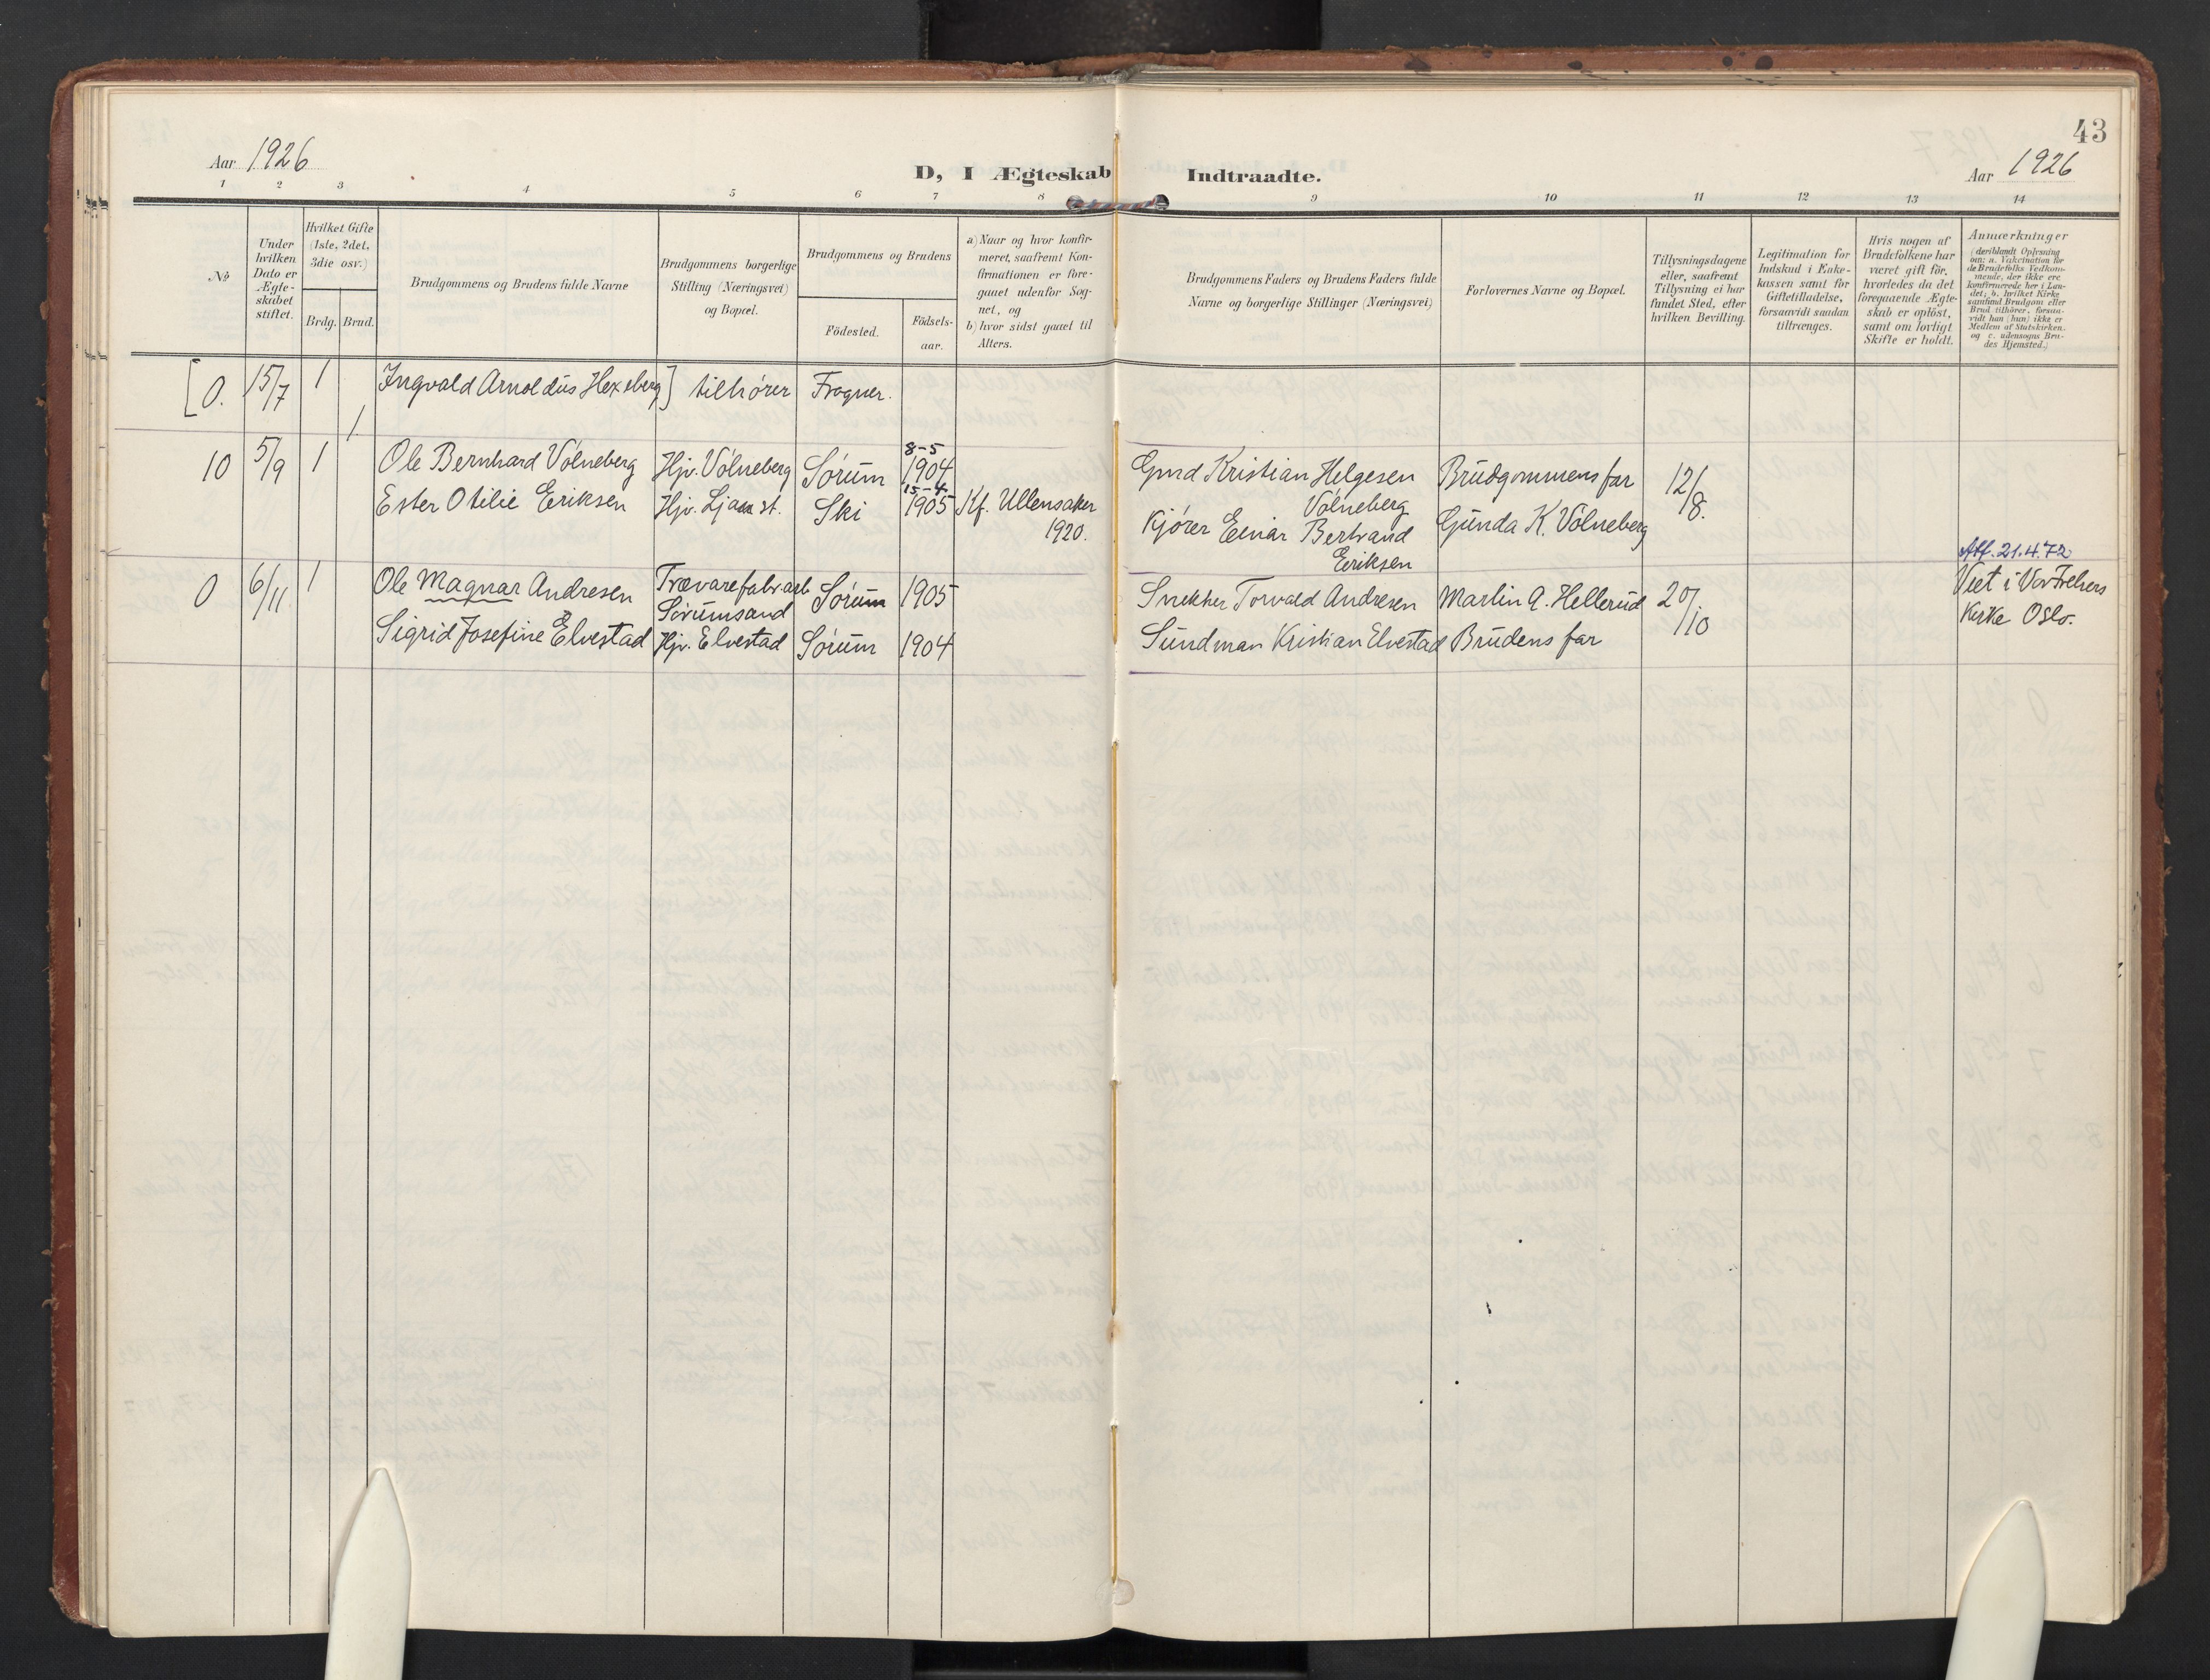 43
Aar 1926
D, I Ægteskab Indtraadte.
Aar 1926
1 2 3 4 5 6 7 8 9 10 11 12 13 14
No
Under
hvilken
Dato er
Ægte-
skabet
stiftet.
Hvilket Gifte
(1ste, 2det,
3die osv.)
Brdg. Brud.
Brudgommens og Brudens fulde Navne
Brudgommens borgerlige
Stilling (Næringsvei)
og Bopæl.
Brudgommens og Brudens
Födested.
Födsels-
aar.
a) Naar og hvor konfir-
meret, saafremt Kon-
firmationen er fore-
gaaet udenfor Sog-
net, og
b) hvor sidst gaaet til
Alters.
Brudgommens Faders og Brudens Faders fulde
Navne og borgerlige Stillinger (Næringsvei)
Forlovernes Navne og Bopæl.
Tillysningsdagene
eller, saafremt
Tillysning ei har
fundet Sted, efter
hvilken Bevilling.
Legitimation for
Indskud i Enke-
kassen samt for
Giftetilladelse,
forsaavidt saadan
tiltrænges.
Hvis nogen af
Brudefolkene har
været gift för,
hvorledes da det
foregaaende Ægte-
skab er oplöst,
samt om lovligt
Skifte er holdt.
Anmærkninger
(deriblandt Oplysning
om: a. Vakcination for
de Brudefolks Vedkom-
mende, der ikke ere
konfirmerede her i Lan-
det; b. hvilket Kirke-
samfund Brudgom eller
Brud tilhörer, forsaa-
vidt han (hun) ikke er
Medlem af Statskirken.
og c. udensogns Bru-
des Hjemsted.)
[0. 15/7 1 Ingvald Arnoldus Hexeberg] tilhører Frogner.
1
10 5/9 1 Ole Bernhard Vølneberg Hjv. Vølneberg Sørum 8-5 1904 Gmd Kristian Helgesen Vølneberg Brudgommens far 12/8.
Ester Otilie Eriksen Hjv. Ljan st. Ski 15-4 1905 Kf. Ullensaker 1920. Kjører Einar Bertrand Eriksen Gunda K. Vølneberg
0 6/11 1 Ole Magnar Andresen Trævarefabr.arb Sørumsand Sørum 1905 Snekker Torvald Andresen Martin A. Hellerud 20/10 Att. 21.4.72
Viet i Vor Frelsers
Kirke Oslo.
Sigrid Josefine Elvestad Hjv. Elvestad Sørum 1904 Sundman Kristian Elvestad Brudens far